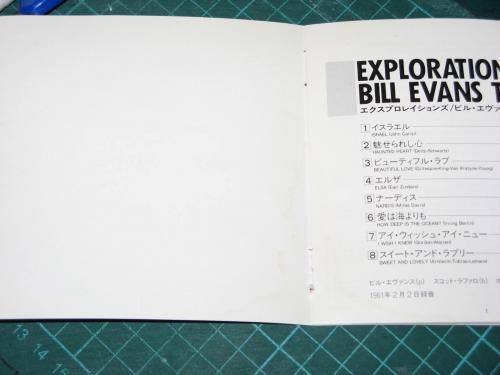 EXPLORATION
BILL EVANS T
エクスプロレイションズ/ビル・エヴァ
1 イスラエル
ISRAEL (John Carisi)
2 魅せられし心
HAUNTED HEART (Deitz-Schwartz)
3 ビューティフル・ラブ
BEAUTIFUL LOVE (Gillespie-King-Van Alstyne-Young)
4 エルザ
ELSA (Earl Zindars)
5 ナーディス
NARDIS (Miles Davis)
6 愛は海よりも
HOW DEEP IS THE OCEAN? (Irving Berlin)
7 アイ・ウィッシュ・アイ・ニュー
I WISH I KNEW (Gordon-Warren)
8 スイート・アンド・ラブリー
SWEET AND LOVELY (Arnheim-Tobias-Lemare)
ビル・エヴァンス(p) スコット・ラファロ(b)
1961年2月2日録音
1
13 14 15